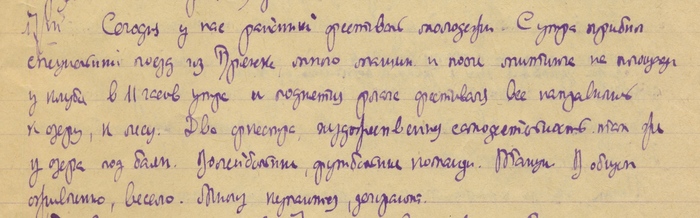 Сегодня у нас районный фестиваль молодежи. С утра прибыл
специальный поезд из много машин и после митинга на площади
у клуба в 11 часов утра и поднятия флага фестиваля все направились
к озеру, к лесу. Два оркестра, художественная самодеятельность там же
у озера под баян. Волейбольные, футбольные команды. Танцы. В общем
оживленно, весело. Многие купаются, загорают.